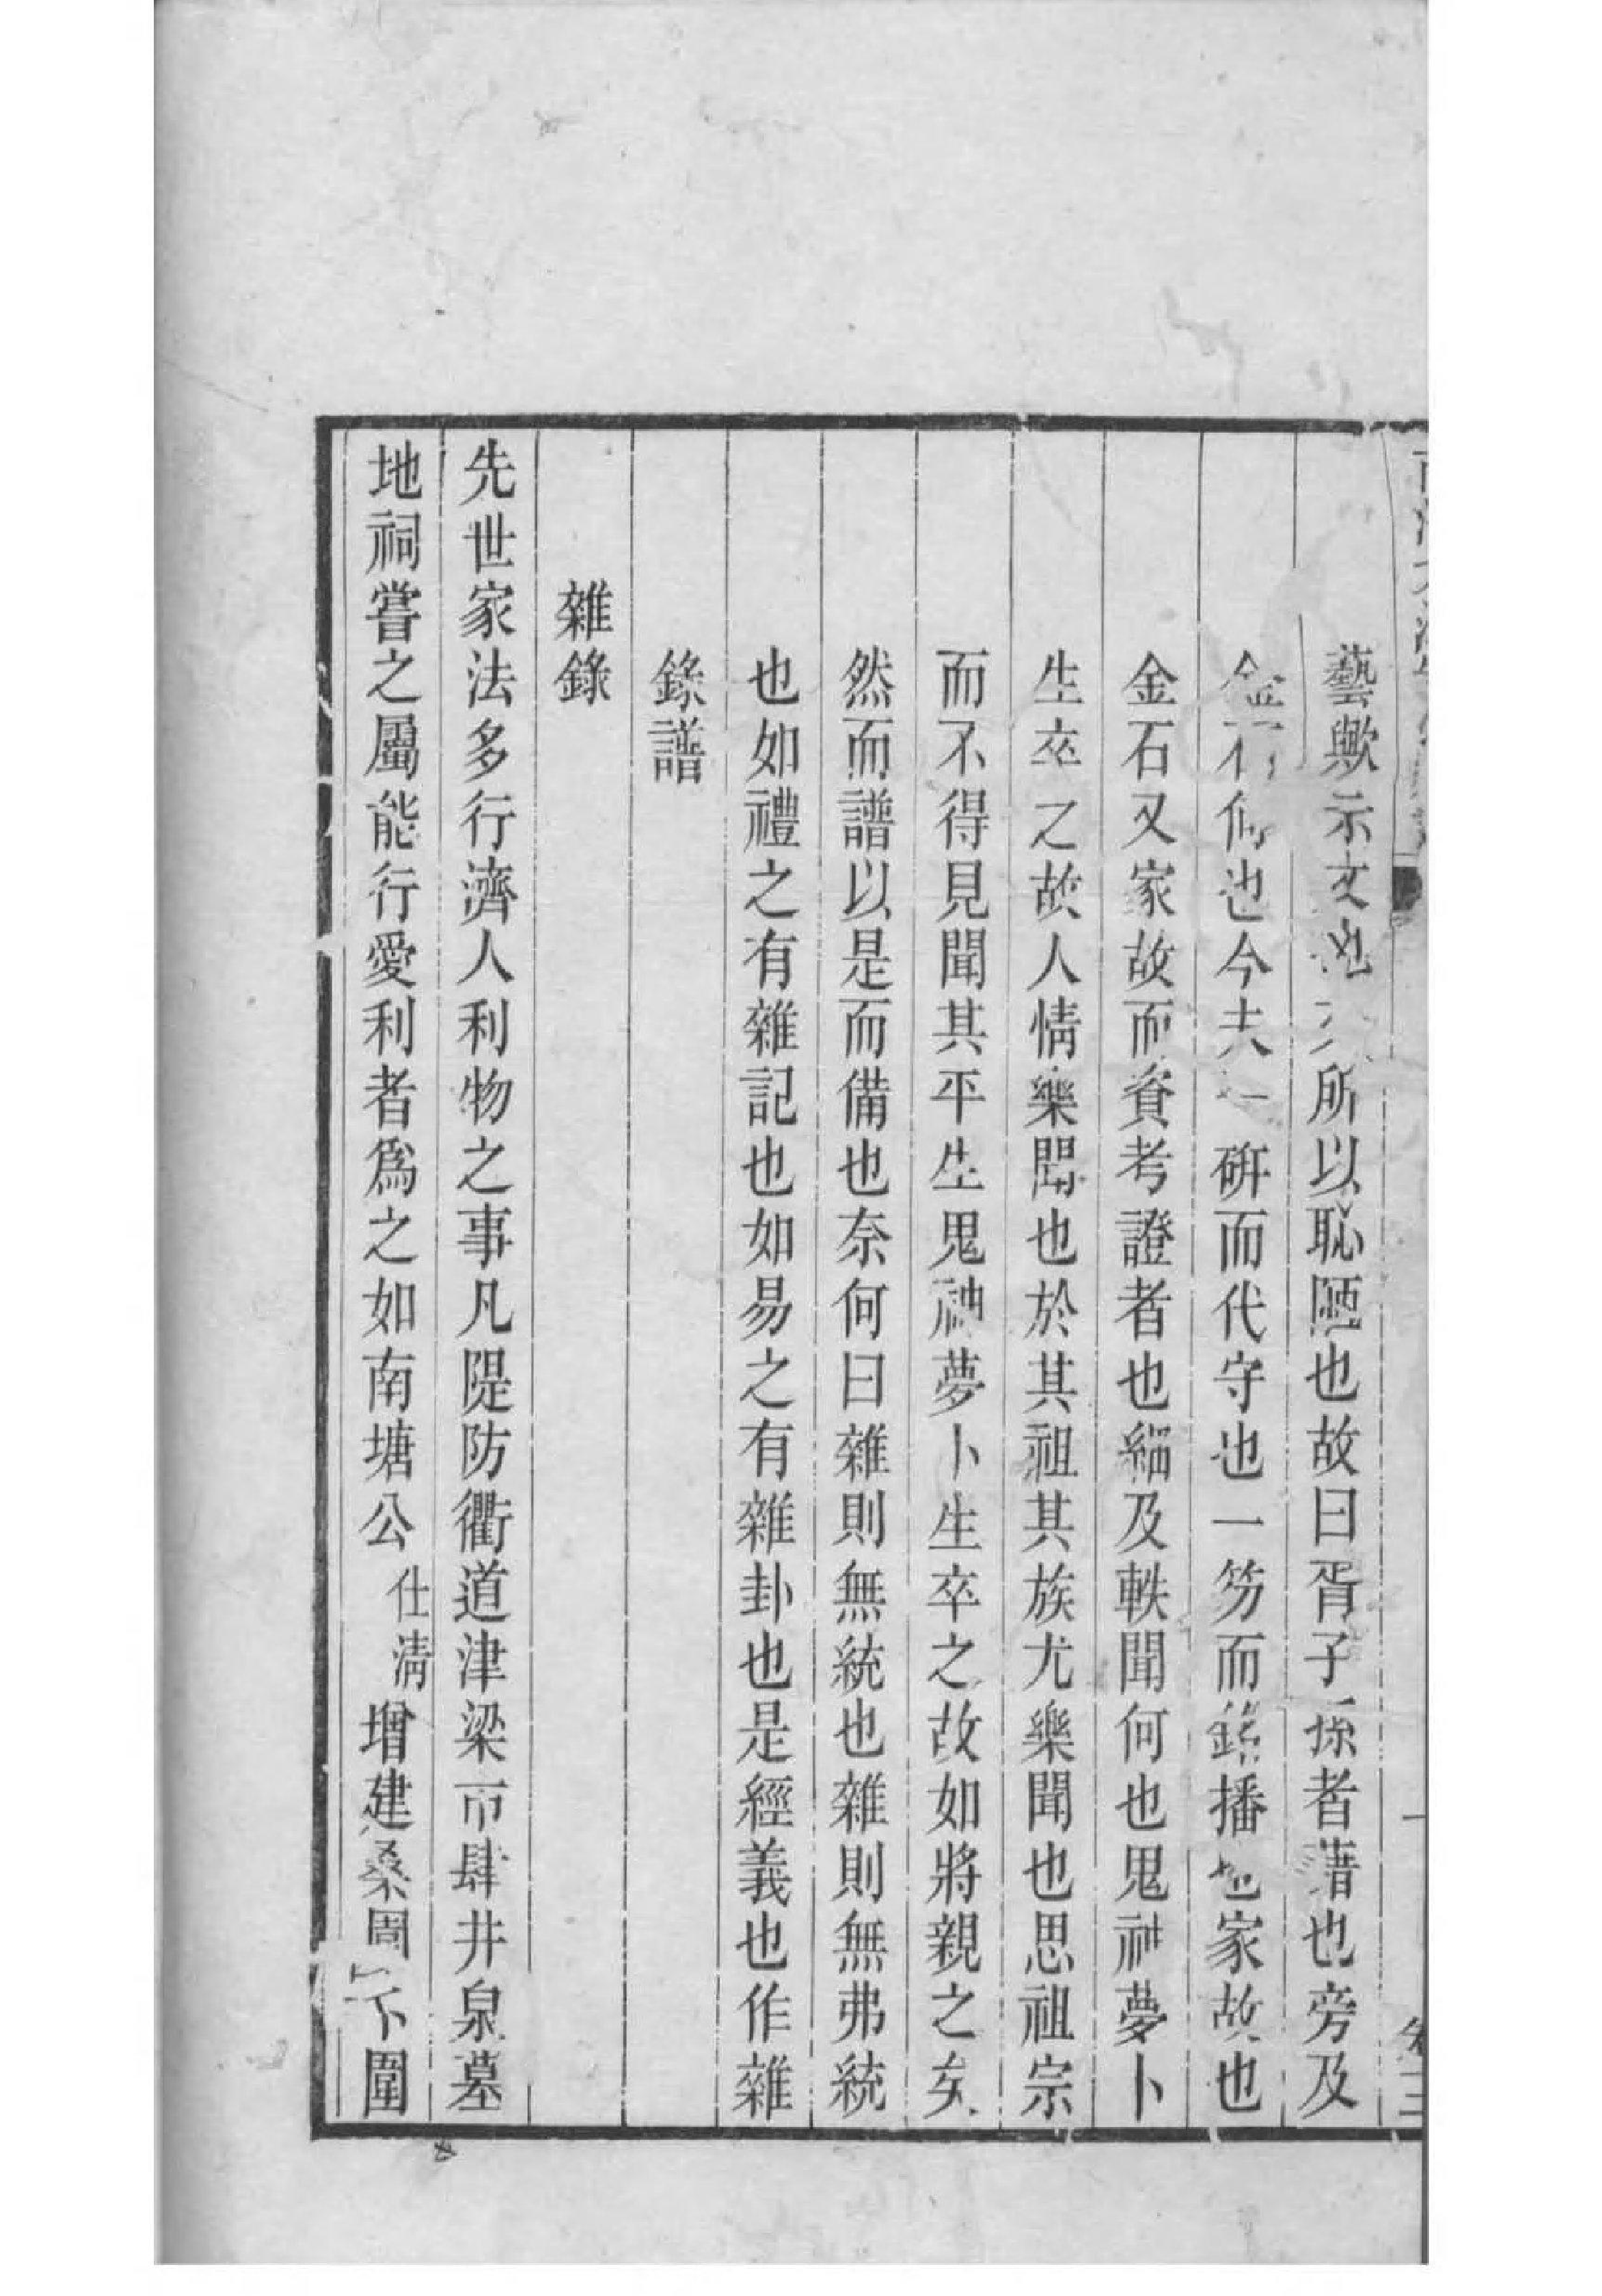 藝歟示文也文所以恥陋也故曰胥子孫者藉也旁及
金石何也今夫一硏而代守也一笏而銘播也家故也
金石又家故而資考證者也緬及軼聞何也鬼神夢卜
生卒之故人情樂聞也於其祖其族尤樂聞也思祖宗
而不得見聞其平生鬼神夢卜生卒之故如將親之矣
然而譜以是而備也奈何曰雜則無統也雜則無弗統
也如禮之有雜記也如易之有雜卦也是經義也作雜
錄譜
雜錄
先世家法多行濟人利物之事凡隄防衢道津梁市肆井泉墓
地祠嘗之屬能行愛利者爲之如南塘公仕清增建桑園下圍